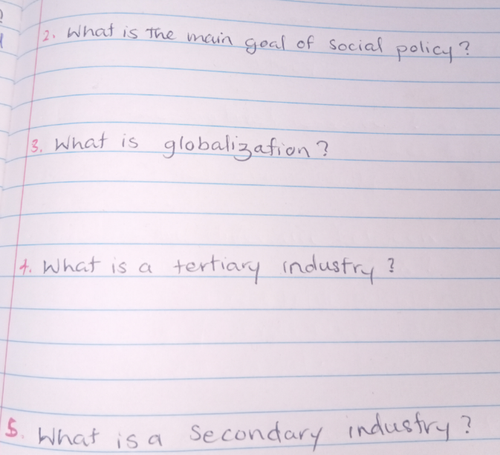 2. What is the main goal of social policy?
3. What is globalization?
4. What is a tertiary industry?
5. What is a secondary industry?